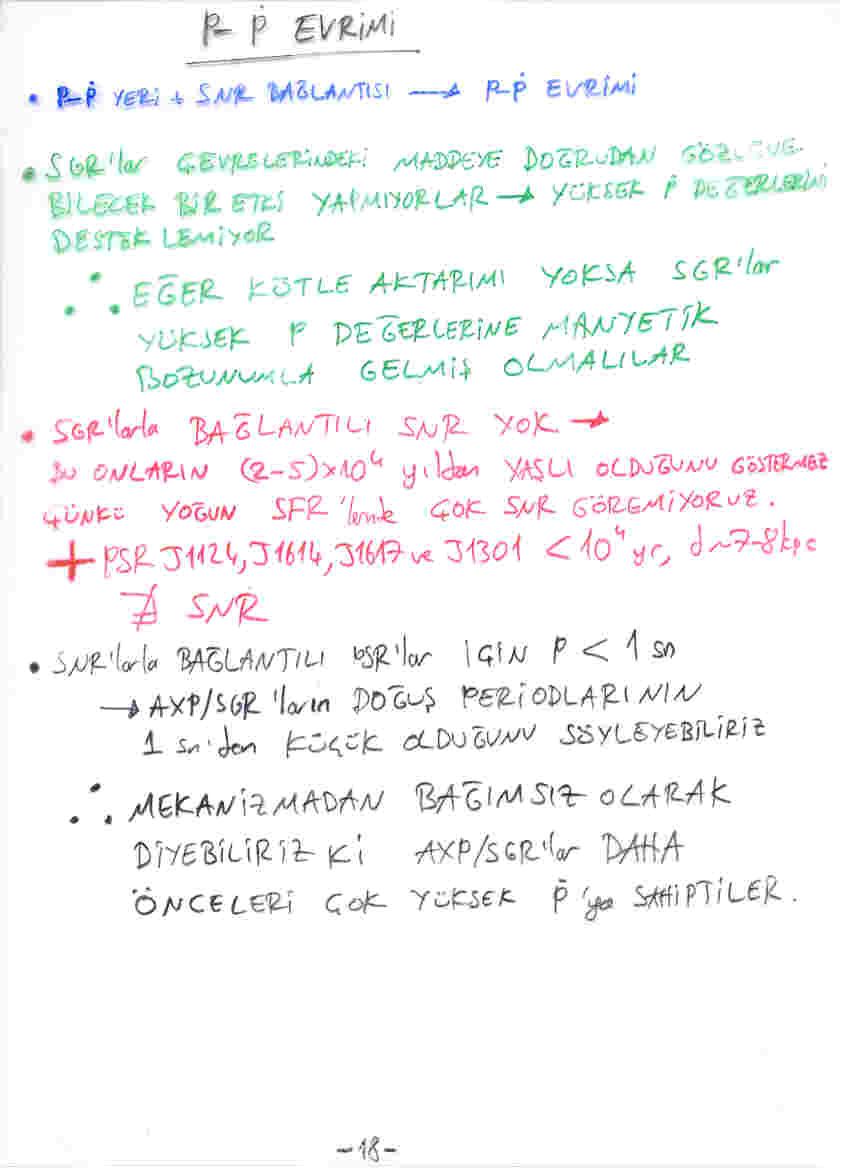 P-Ṗ EVRİMİ
• P-Ṗ YERİ + SNR BAĞLANTISI → P-Ṗ EVRİMİ
• SGR'lar ÇEVRELERİNDEKİ MADDEYE DOĞRUDAN GÖZLENE-
BİLECEK BİR ETKİ YAPMIYORLAR → YÜKSEK Ṗ DEĞERLERİNİ
DESTEKLEMİYOR
∴ EĞER KÜTLE AKTARIMI YOKSA SGR'lar
YÜKSEK P DEĞERLERİNE MANYETİK
BOZUNUMLA GELMİŞ OLMALILAR
• SGR'larla BAĞLANTILI SNR YOK →
BU ONLARIN (2-5)×10⁴ yıldan YAŞLI OLDUĞUNU GÖSTERMEZ
ÇÜNKÜ YOĞUN SFR'lerde ÇOK SNR GÖREMİYORUZ.
+ PSR J1124, J1614, J1617 ve J1301 < 10⁴ yr, d~7-8kpc
∄ SNR
• SNR'larla BAĞLANTILI PSR'lar İÇİN P < 1 sn
→ AXP/SGR'ların DOĞUŞ PERİODLARININ
1 sn'den KÜÇÜK OLDUĞUNU SÖYLEYEBİLİRİZ
∴ MEKANİZMADAN BAĞIMSIZ OLARAK
DİYEBİLİRİZ Kİ AXP/SGR'lar DAHA
ÖNCELERİ ÇOK YÜKSEK Ṗ'ya SAHİPTİLER.
-18-